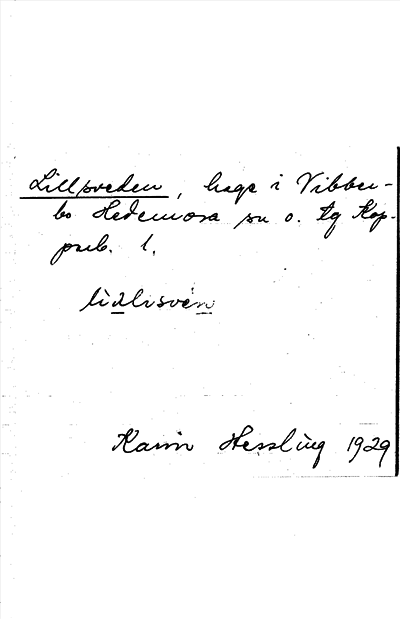 Lillsveden, hage i Vibber-
bo Hedemora sn o. tg Kop-
parb. l.
lìdlisvén
Karin Hessling 1929